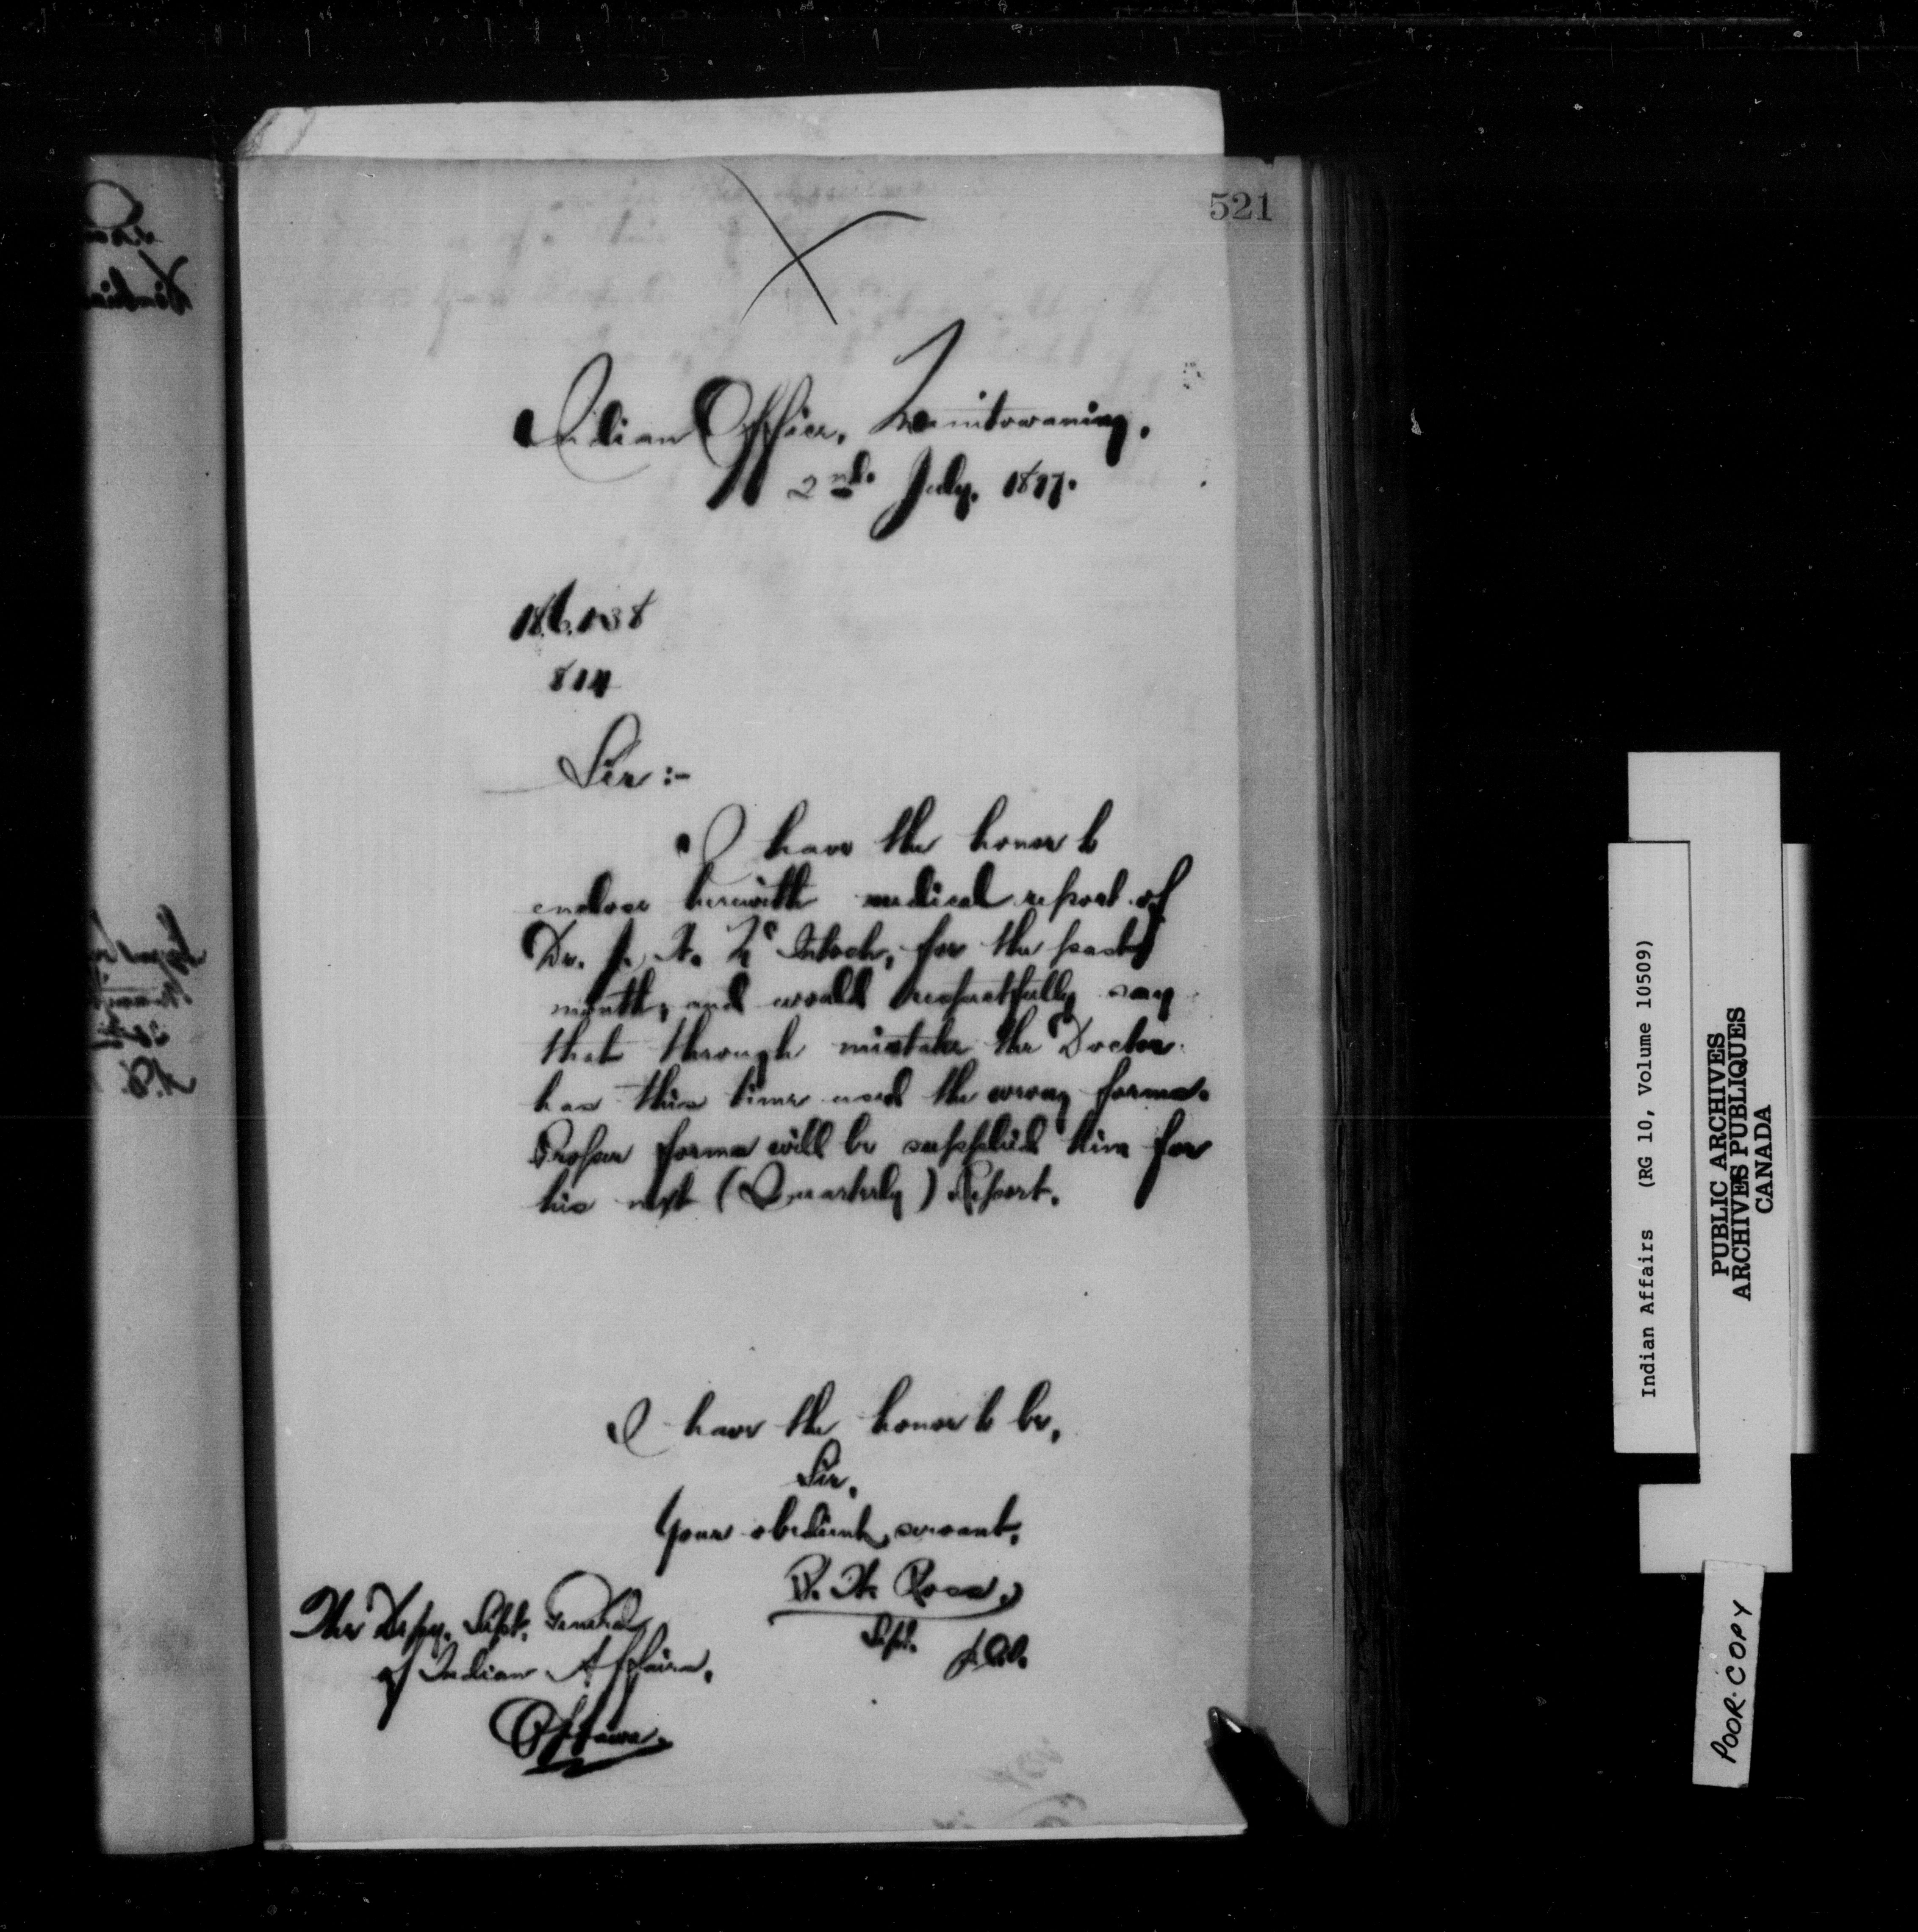 521
Indian Office, Manitowaning,
2nd. July, 1897.
814
Sir :-
I have the honor to
enclose herewith medical report of
Dr. for the past
month, and would respectfully say
that through mistake the Doctor
has this time used the wrong forms.
Proper forms will be supplied him for
his next (Quarterly) Report.
I have the honor to be,
Sir,
Your obedient servant,
B. W. Ross,
Supt.
The Depy. Supt. General
of Indian Affairs,
Ottawa.
Indian Affairs (RG 10, Volume 10509)
PUBLIC ARCHIVES
ARCHIVES PUBLIQUES
CANADA
POOR COPY